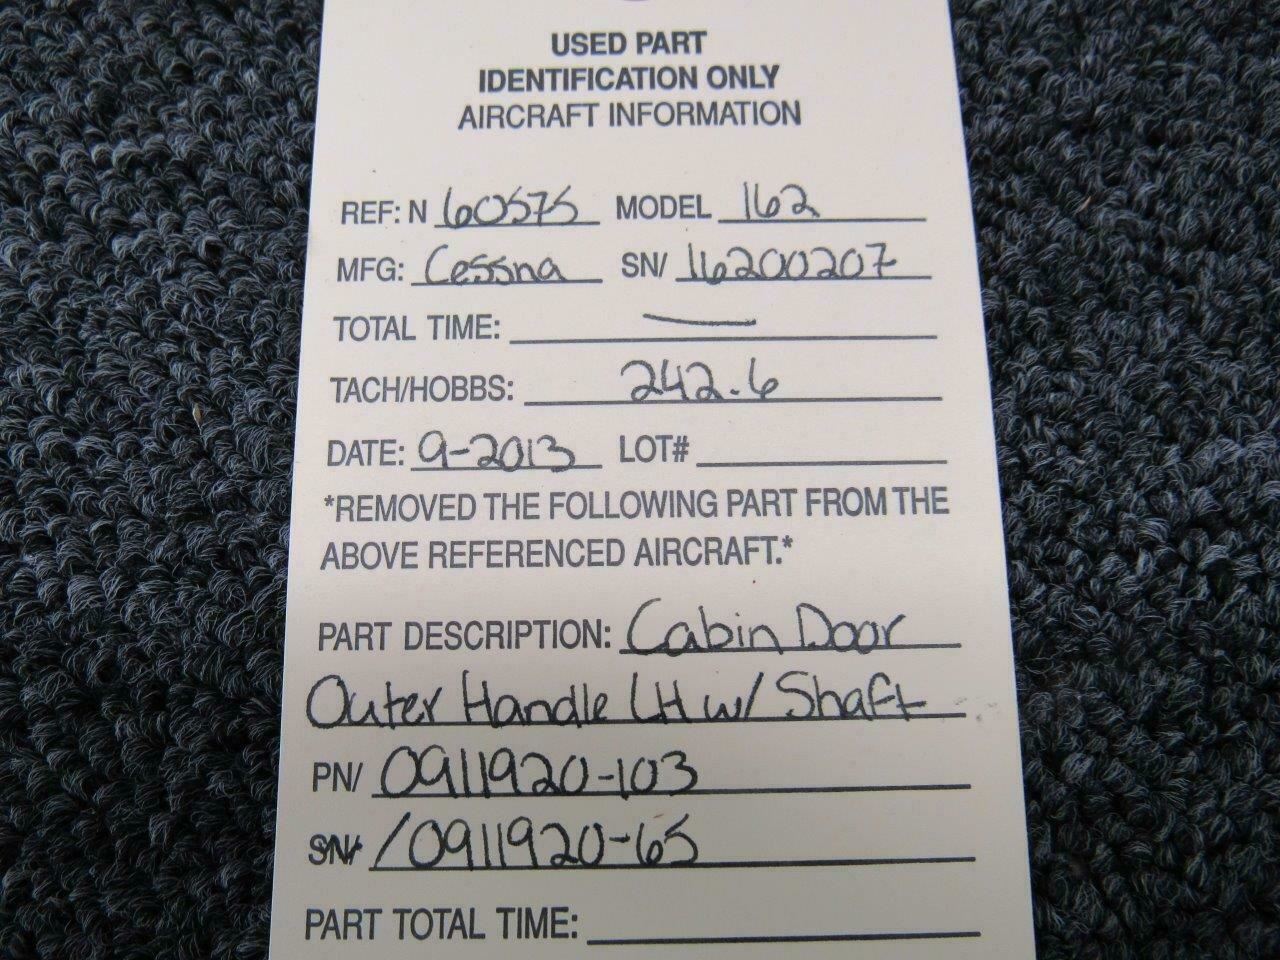 USED PART
IDENTIFICATION ONLY
AIRCRAFT INFORMATION
REF: N 60575 MODEL 162
MFG: Cessna SN/ 16200207
TOTAL TIME: —
TACH/HOBBS: 242.6
DATE: 9-2013 LOT#
*REMOVED THE FOLLOWING PART FROM THE
ABOVE REFERENCED AIRCRAFT.*
PART DESCRIPTION: Cabin Door
Outer Handle LH w/ Shaft
PN/ 0911920-103
SN/ /0911920-65
PART TOTAL TIME: